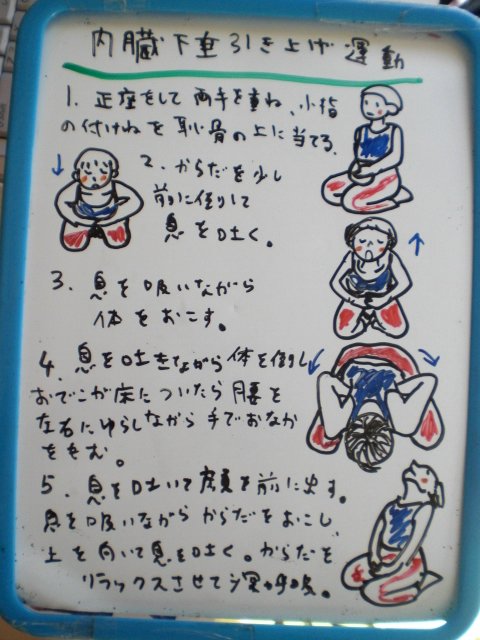 内臓下垂引き上げ運動
1. 正座をして両手を重ね、小指
の付けねを恥骨の上に当てる。
2. からだを少し
前に倒して
息を吐く。
3. 息を吸いながら
体をおこす。
4. 息を吐きながら体を倒し
おでこが床についたら腰を
左右にゆらしながら手でおなか
をもむ。
5. 息を吐いて顔を前に出す。
息を吸いながらからだをおこし、
上を向いて息を吐く。からだを
リラックスさせて深呼吸。